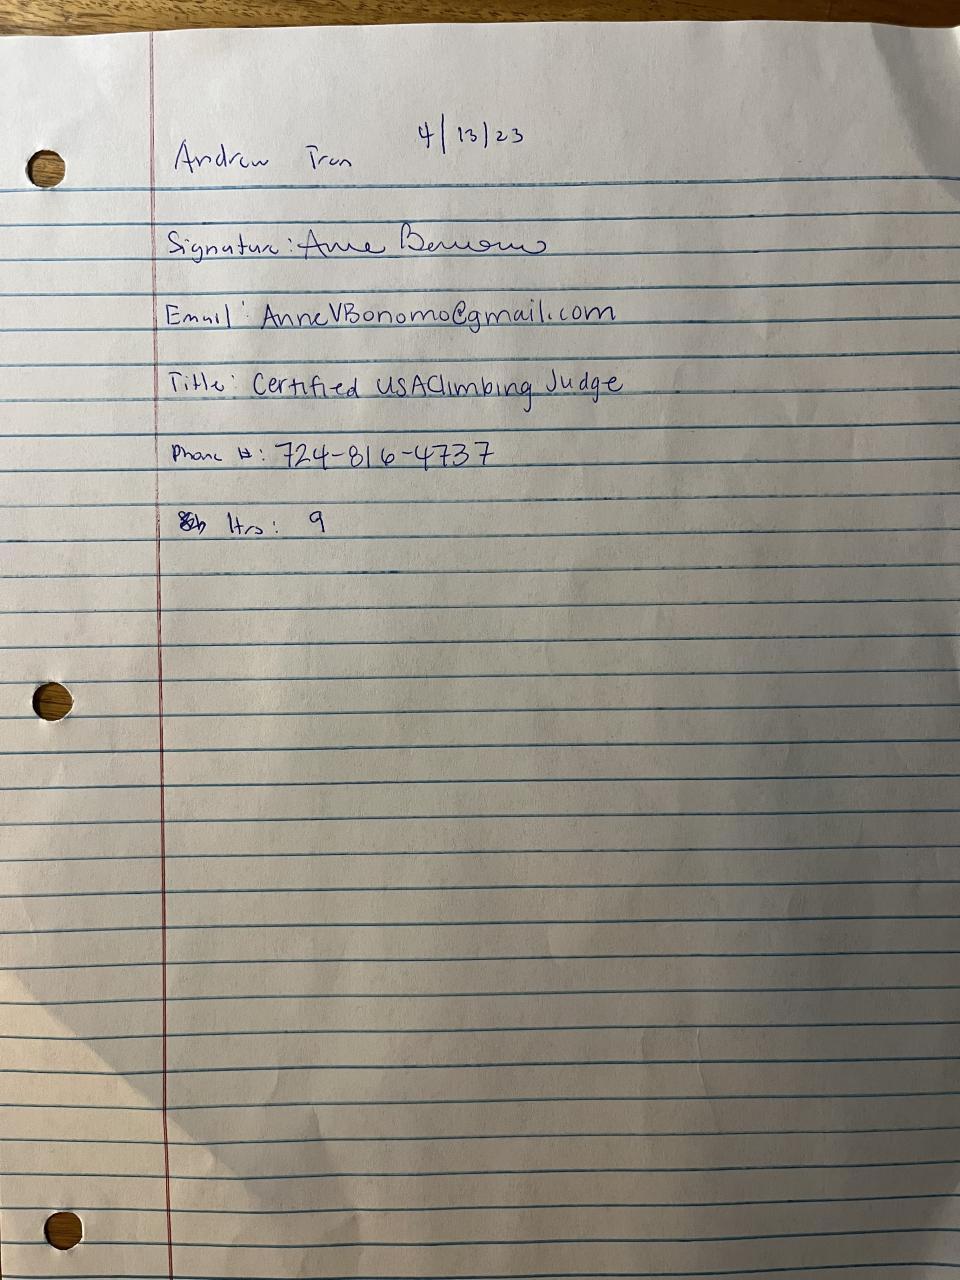 Andrew Tran 4/13/23
Signature: Anne Bonomo
Email: AnneVBonomo@gmail.com
Title: Certified USAClimbing Judge
Phone #: 724-816-4737
Hrs: 9